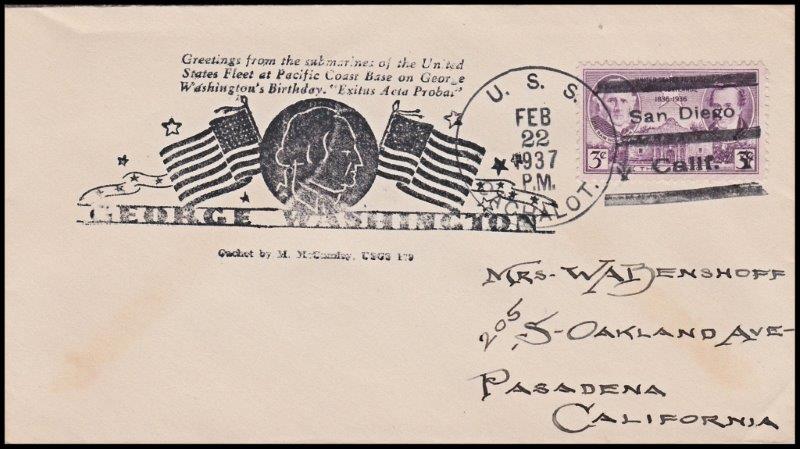 Greetings from the submarines of the United
States Fleet at Pacific Coast Base on George
Washington's Birthday. "Exitus Acta Probat"
GEORGE WASHINGTON
Cachet by M. USCS 179
U. S. S.
FEB
22
1937
P.M.
1836-1936
San Diego
Calif.
3¢
Mrs. WA Benshoff
205 S-Oakland Ave-
Pasadena
California